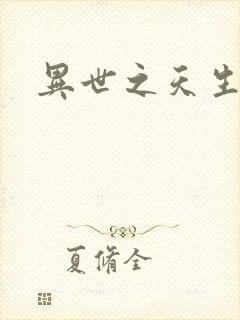 異世之天生
夏脩全